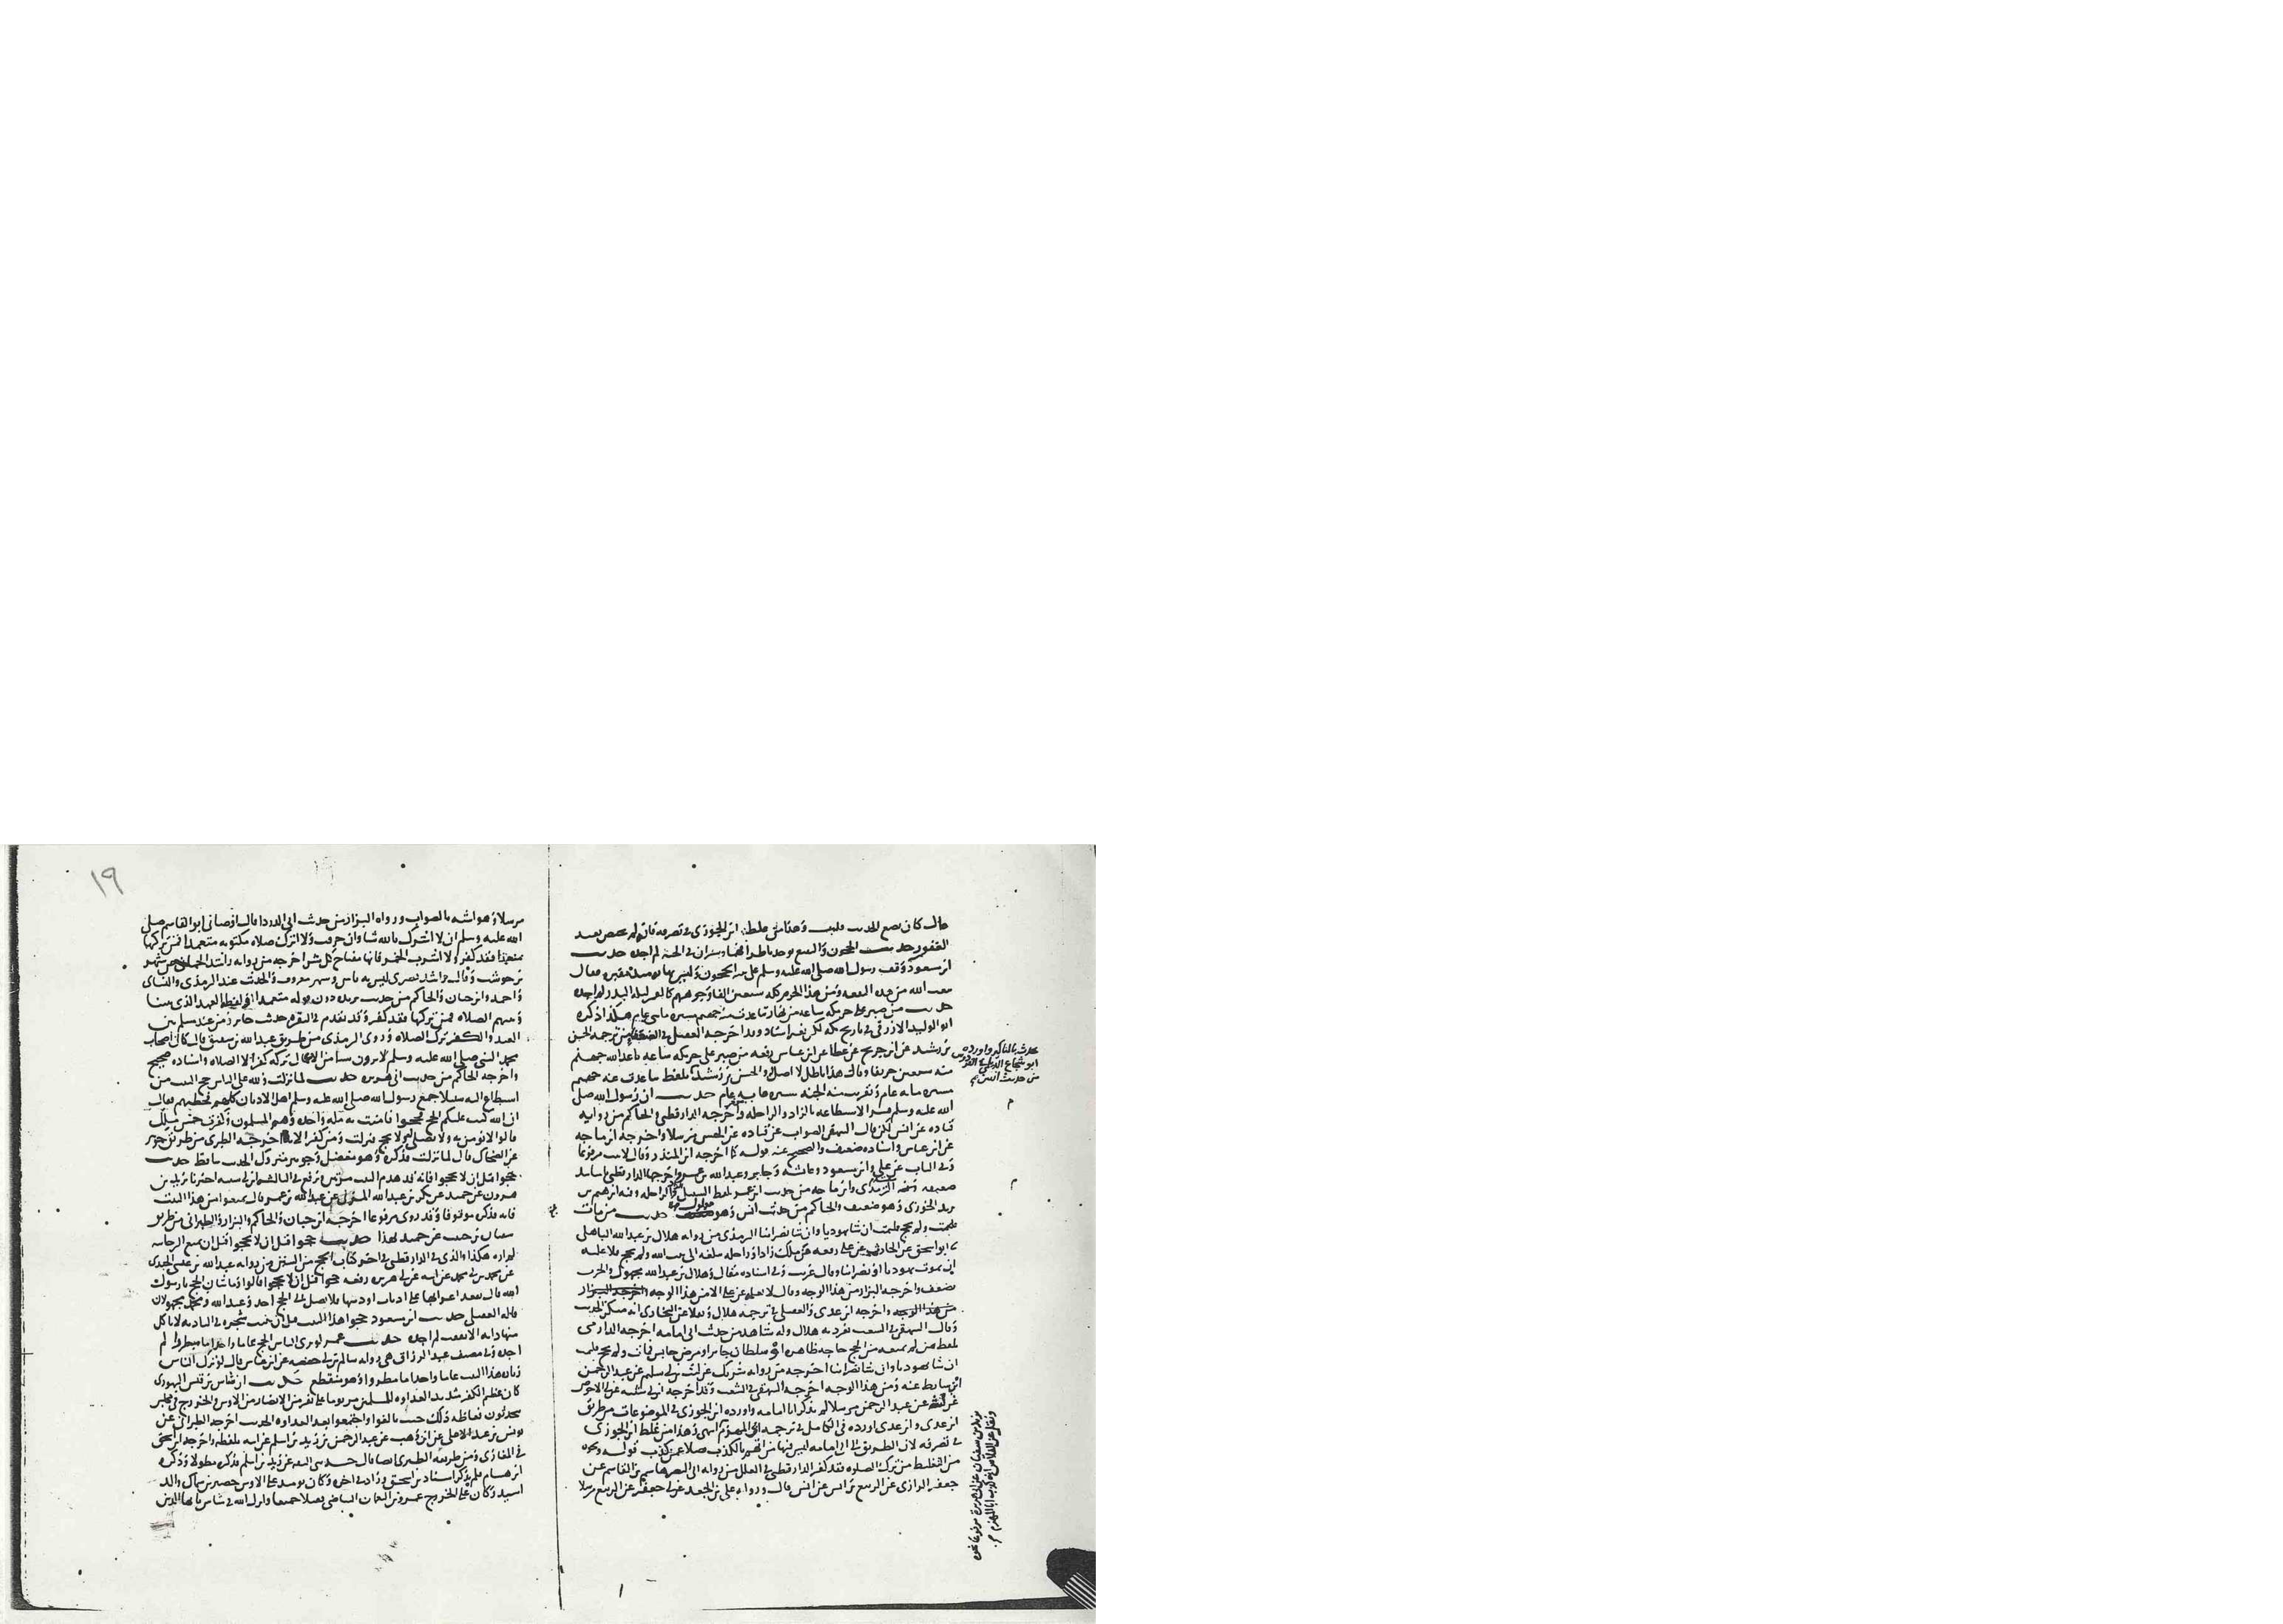 قال كان يضع الحديث قلت وهذا من غلط ابن الجوزي في تصرفه فان لم يختص بعبد
الغفور حديث الحجون والبقيع يوخذ باطرافهما وينثران في الجنة لم اجده حديث
ابن مسعود وقف رسول الله صلى الله عليه وسلم على الحجون وليس بها يومئذ مقبره فقال
يبعث الله من هذه البقعه ومن هذا الحرم كله سبعين الفا وجوههم كالقمر ليلة البدر لم اجده
حديث من صبر على حر مكه ساعه من نهار تباعدت منه جهنم مسيره مائتي عام هكذا ذكره
ابو الوليد الازرقي في تاريخ مكه لكن بغير اسناد وقد اخرجه العقيلي في الضعفاء من ترجمة الحسن
بن رشيد عن ابن جريج عن عطا عن ابن عباس رفعه من صبر على حر مكه ساعه باعد الله جهنم
منه سبعين خريفا وقال هذا باطل لا اصل له والحسن بن رشيد
مسيره مايه عام وتقربت منه الجنه مسيره مايه عام حديث ان رسول الله صلى
الله عليه وسلم فسر الاستطاعه بالزاد والراحله واخرجه الدارقطني والحاكم من روايه
قتاده عن انس لكن قال البيهقي الصواب عن قتاده عن الحسن مرسلا واخرجه ابن ماجه
عن ابن عباس واسناده ضعيف والصحيح عنه قوله كما اخرجه ابن المنذر وقال لا يثبت مرفوعا
وفي الباب عن علي وابن مسعود وعائشه وجابر وعبد الله بن عمرو اخرجها الدارقطني باسانيد
ضعيفه الترمذي وابن ماجه من حديث ابن عمر بلفظ السبيل الزاد والراحله وفيه ابراهيم بن
يزيد الخوزي وهو ضعيف والحاكم من حديث انس وهو معلول حديث من مات
فليمت ان شا يهوديا وان شا نصرانيا الترمذي من روايه هلال بن عبد الله الباهلي
ابو اسحق عن الحارث عن علي رفعه من ملك زادا وراحله تبلغه الى بيت الله ولم يحج فلا عليه
ان يموت يهوديا او نصرانيا وقال غريب وفي اسناده مقال وهلال بن عبد الله مجهول والحارث
يضعف واخرجه البزار من هذا الوجه وقال لا نعلمه عن علي الا من هذا الوجه واخرجه البزار
من هذا الوجه واخرجه ابن عدي والعقيلي في ترجمه هلال ونقلا عن البخاري انه منكر الحديث
وقال البيهقي في الشعب تفرد به هلال وله شاهد من حديث ابي امامه اخرجه الدارمي
بلفظ من لم يمنعه من الحج حاجه ظاهره او سلطان جاير او مرض حابس فمات ولم يحج فليمت
ان شا يهوديا وان شا نصرانيا اخرجه من روايه شريك عن ليث بن ابي سليم عن عبد الرحمن
ابن سابط عنه ومن هذا الوجه اخرجه البيهقي في الشعب وقد اخرجه ابن ابي شيبه عن ابي الاحوص
عن ليث عن عبد الرحمن مرسلا لم يذكر ابا امامه واورده ابن الجوزي في الموضوعات من طريق
ابن عدي وابن عدي اورده في الكامل في ترجمه ابي المهزم انتهى وهذا من غلط ابن الجوزي
في تصرفه لان الطريق الى ابي امامه ليس فيها من اتهم بالكذب فضلا عمن كذب قوله ونحوه
من التغليظ من ترك الصلوه فقد كفر الدارقطني في العلل من روايه ابي النضر هاشم بن القاسم عن
جعفر الرازي عن الربيع بن انس عن انس قال ورواه علي بن الجعد عن ابي جعفر عن الربيع مرسلا
يحدث بالمناكير واورده
ابو شجاع الديلمي في الفردوس
من حديث انس
م
م
يزيد بن سفيان عن ابي هريرة مرفوعا نحوه
ونقل عن الفلاس انه كذب ابا المهزم
١٩
مرسلا وهو اشبه بالصواب ورواه البزار من حديث ابي الدردا قال اوصاني ابو القاسم صلى
الله عليه وسلم ان لا اشرك بالله شيا وان حرقت ولا اترك صلاه مكتوبه متعمدا فمن تركها
متعمدا فقد كفر ولا اشرب الخمر فانها مفتاح كل شر اخرجه من روايه راشد الحماني عن شهر
بن حوشب وقال راشد بصري ليس به باس وشهر معروف والحديث عند الترمذي والنسائي
واحمد وابن حبان والحاكم من حديث بريده دون قوله متعمدا ولفظه العهد الذي بيننا
وبينهم الصلاه فمن تركها فقد كفر وقد تقدم في البقره حديث جابر ومن عند مسلم بين
العبد والكفر ترك الصلاه وروى الترمذي من طريق عبد الله بن شقيق قال كان اصحاب
محمد النبي صلى الله عليه وسلم لا يرون شيا من الاعمال تركه كفر الا الصلاه واسناده صحيح
واخرجه الحاكم من حديث ابي هريره حديث لما نزلت ولله على الناس حج البيت من
استطاع اليه سبيلا جمع رسول الله صلى الله عليه وسلم اهل الاديان كلهم فخطبهم فقال
ان الله كتب عليكم الحج فحجوا فامنت به مله واحده وهم المسلمون وكفرت خمس ملل
قالوا لا نومن به ولا نصلي اليه ولا نحج فنزلت ومن كفر الايه اخرجه الطبري من طريق جويبر
عن الضحاك قال لما نزلت فذكره وهو معضل وجويبر متروك الحديث ساقط حديث
حجوا قبل ان لا تحجوا فانه قد هدم البيت مرتين ويرفع في الثالثه
هرون عن حميد عن بكر بن عبد الله المزني عن عبد الله بن عمر قال تمتعوا من هذا البيت
فانه فذكره موقوفا وقد روي مرفوعا اخرجه ابن حبان والحاكم والبزار والطبراني من طريق
سفيان بن حبيب عن حميد بهذا حديث حجوا قبل ان لا تحجوا قبل ان يمنع البر جانبه
هكذا والذي في الدارقطني في اخر كتاب الحج من السنن من روايه عبد الله بن عيسى الجندي
عن محمد بن ابي محمد عن ابيه عن ابي هريره رفعه حجوا قبل ان لا تحجوا قالوا وما شان الحج يا رسول
الله قال تقعد اعرابها على اذناب اوديتها فلا يصل الى الحج احد وعبد الله ومحمد مجهولان
قاله العقيلي حديث ابن مسعود حجوا هذا البيت قبل ان تنبت شجره في الباديه لا ياكل
منها دابه الا نفقت لم اجده حديث عمر لو ترك الناس الحج عاما واحدا ما نوظروا لم
اجده وفي مصنف عبد الرزاق من روايه سالم بن ابي حفصه عن ابن عباس قال لو ترك الناس
زياره هذا البيت عاما واحدا ما مطروا وهو منقطع حديث ان شاس بن قيس اليهودي
كان عظيم الكفر شديد العداوه للمسلمين مر يوما على نفر من الانصار من الاوس والخزرج في مجلس
يتحدثون فغاظه ذلك حيث تالفوا واجتمعوا بعد العداوه الحديث اخرجه الطبراني عن
يونس بن عبد الاعلى عن ابن وهب عن عبد الرحمن بن زيد بن اسلم عن ابيه بلفظه واخرجه ابن اسحق
في المغازي ومن طريقه الطبري ايضا قال حدثني الثقه عن زيد بن اسلم فذكره مطولا وذكره
ابن هشام فلم يذكر اسناد ابن اسحق وزاد في اخره وكان يومئذ على الاوس حضير بن سماك والد
اسيد وكان على الخزرج عمرو بن النعمان البياضي فقتلا جميعا وانزل الله في شاس